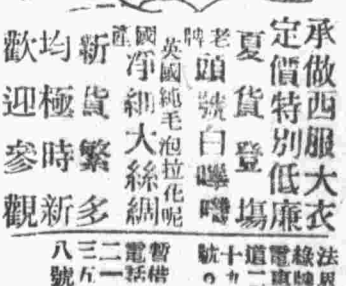 承做西服大衣
定價特別低廉
夏貨登場
老牌頭號白嗶嘰
英國純毛泡拉化呢
國產淨細大絲綢
新貨繁多
均極時新
歡迎參觀
法界
綠牌
電車
道二
十九
號。
暫借
電話
二一
三五
八號